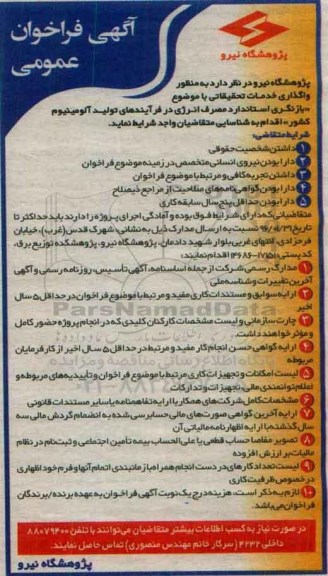 پژوهشگاه نیرو
آگهی فراخوان
عمومی
پژوهشگاه نیرو در نظر دارد به منظور
واگذاری خدمات تحقیقاتی با موضوع
«بازنگری استاندارد مصرف انرژی در فرآیندهای تولید آلومینیوم
کشور» اقدام به شناسایی متقاضیان واجد شرایط نماید.
شرایط متقاضی:
۱ داشتن شخصیت حقوقی
۲ دارا بودن نیروی انسانی متخصص در زمینه موضوع فراخوان
۳ داشتن تجربه کافی و مرتبط با موضوع فراخوان
۴ دارا بودن گواهی‌نامه‌های صلاحیت از مراجع ذیصلاح
۵ دارا بودن حداقل پنج سال سابقه کاری
متقاضیانی که دارای شرایط فوق بوده و آمادگی اجرای پروژه را دارند باید حداکثر تا
تاریخ نسبت به ارسال مدارک ذیل به نشانی: شهرک قدس (غرب)، خیابان
فرحزادی، انتهای غربی بلوار شهید دادمان، پژوهشگاه نیرو، پژوهشکده توزیع برق،
کدپستی اقدام نمایند:
۱ مدارک رسمی شرکت از جمله اساسنامه، آگهی تأسیس، روزنامه رسمی و آگهی
آخرین تغییرات و شناسه ملی
۲ ارایه سوابق و مستندات کاری مفید و مرتبط با موضوع فراخوان در حداقل ۵ سال
اخیر
۳ چارت سازمانی و لیست مشخصات کارکنان کلیدی که در انجام پروژه حضور کامل
و موثر خواهند داشت.
۴ ارایه گواهی حسن انجام کار مفید و مرتبط در حداقل ۵ سال اخیر از کارفرمایان
مربوطه
۵ لیست امکانات و تجهیزات کاری مرتبط با موضوع فراخوان و تأییدیه‌های مربوطه و
اعلام توانمندی مالی، تجهیزات و تدارکات
۶ مشخصات کامل شرکت‌های همکار با ارایه تفاهمنامه یا سایر مستندات قانونی
۷ ارایه آخرین گواهی صورت‌های مالی حسابرسی شده به انضمام گردش مالی سه
سال گذشته با ارایه اظهارنامه مالیاتی آن
۸ تصویر مفاصا حساب قطعی یا علی الحساب بیمه تأمین اجتماعی و ثبت‌نام در نظام
مالیات بر ارزش افزوده
۹ لیست تعداد کارهای در دست انجام همراه با زمانبندی اتمام آنها و فرم خود اظهاری
در خصوص ظرفیت کاری
۱۰ لازم به ذکر است، هزینه درج یک نوبت آگهی فراخوان به عهده برنده/برندگان
فراخوان می‌باشد.
در صورت نیاز به کسب اطلاعات بیشتر متقاضیان می‌توانند با تلفن ۸۸۰۷۹۴۰۰
داخلی ۴۲۴۲ (سرکار خانم مهندس منصوری) تماس حاصل نمایند.
پژوهشگاه نیرو
ParsNamadData